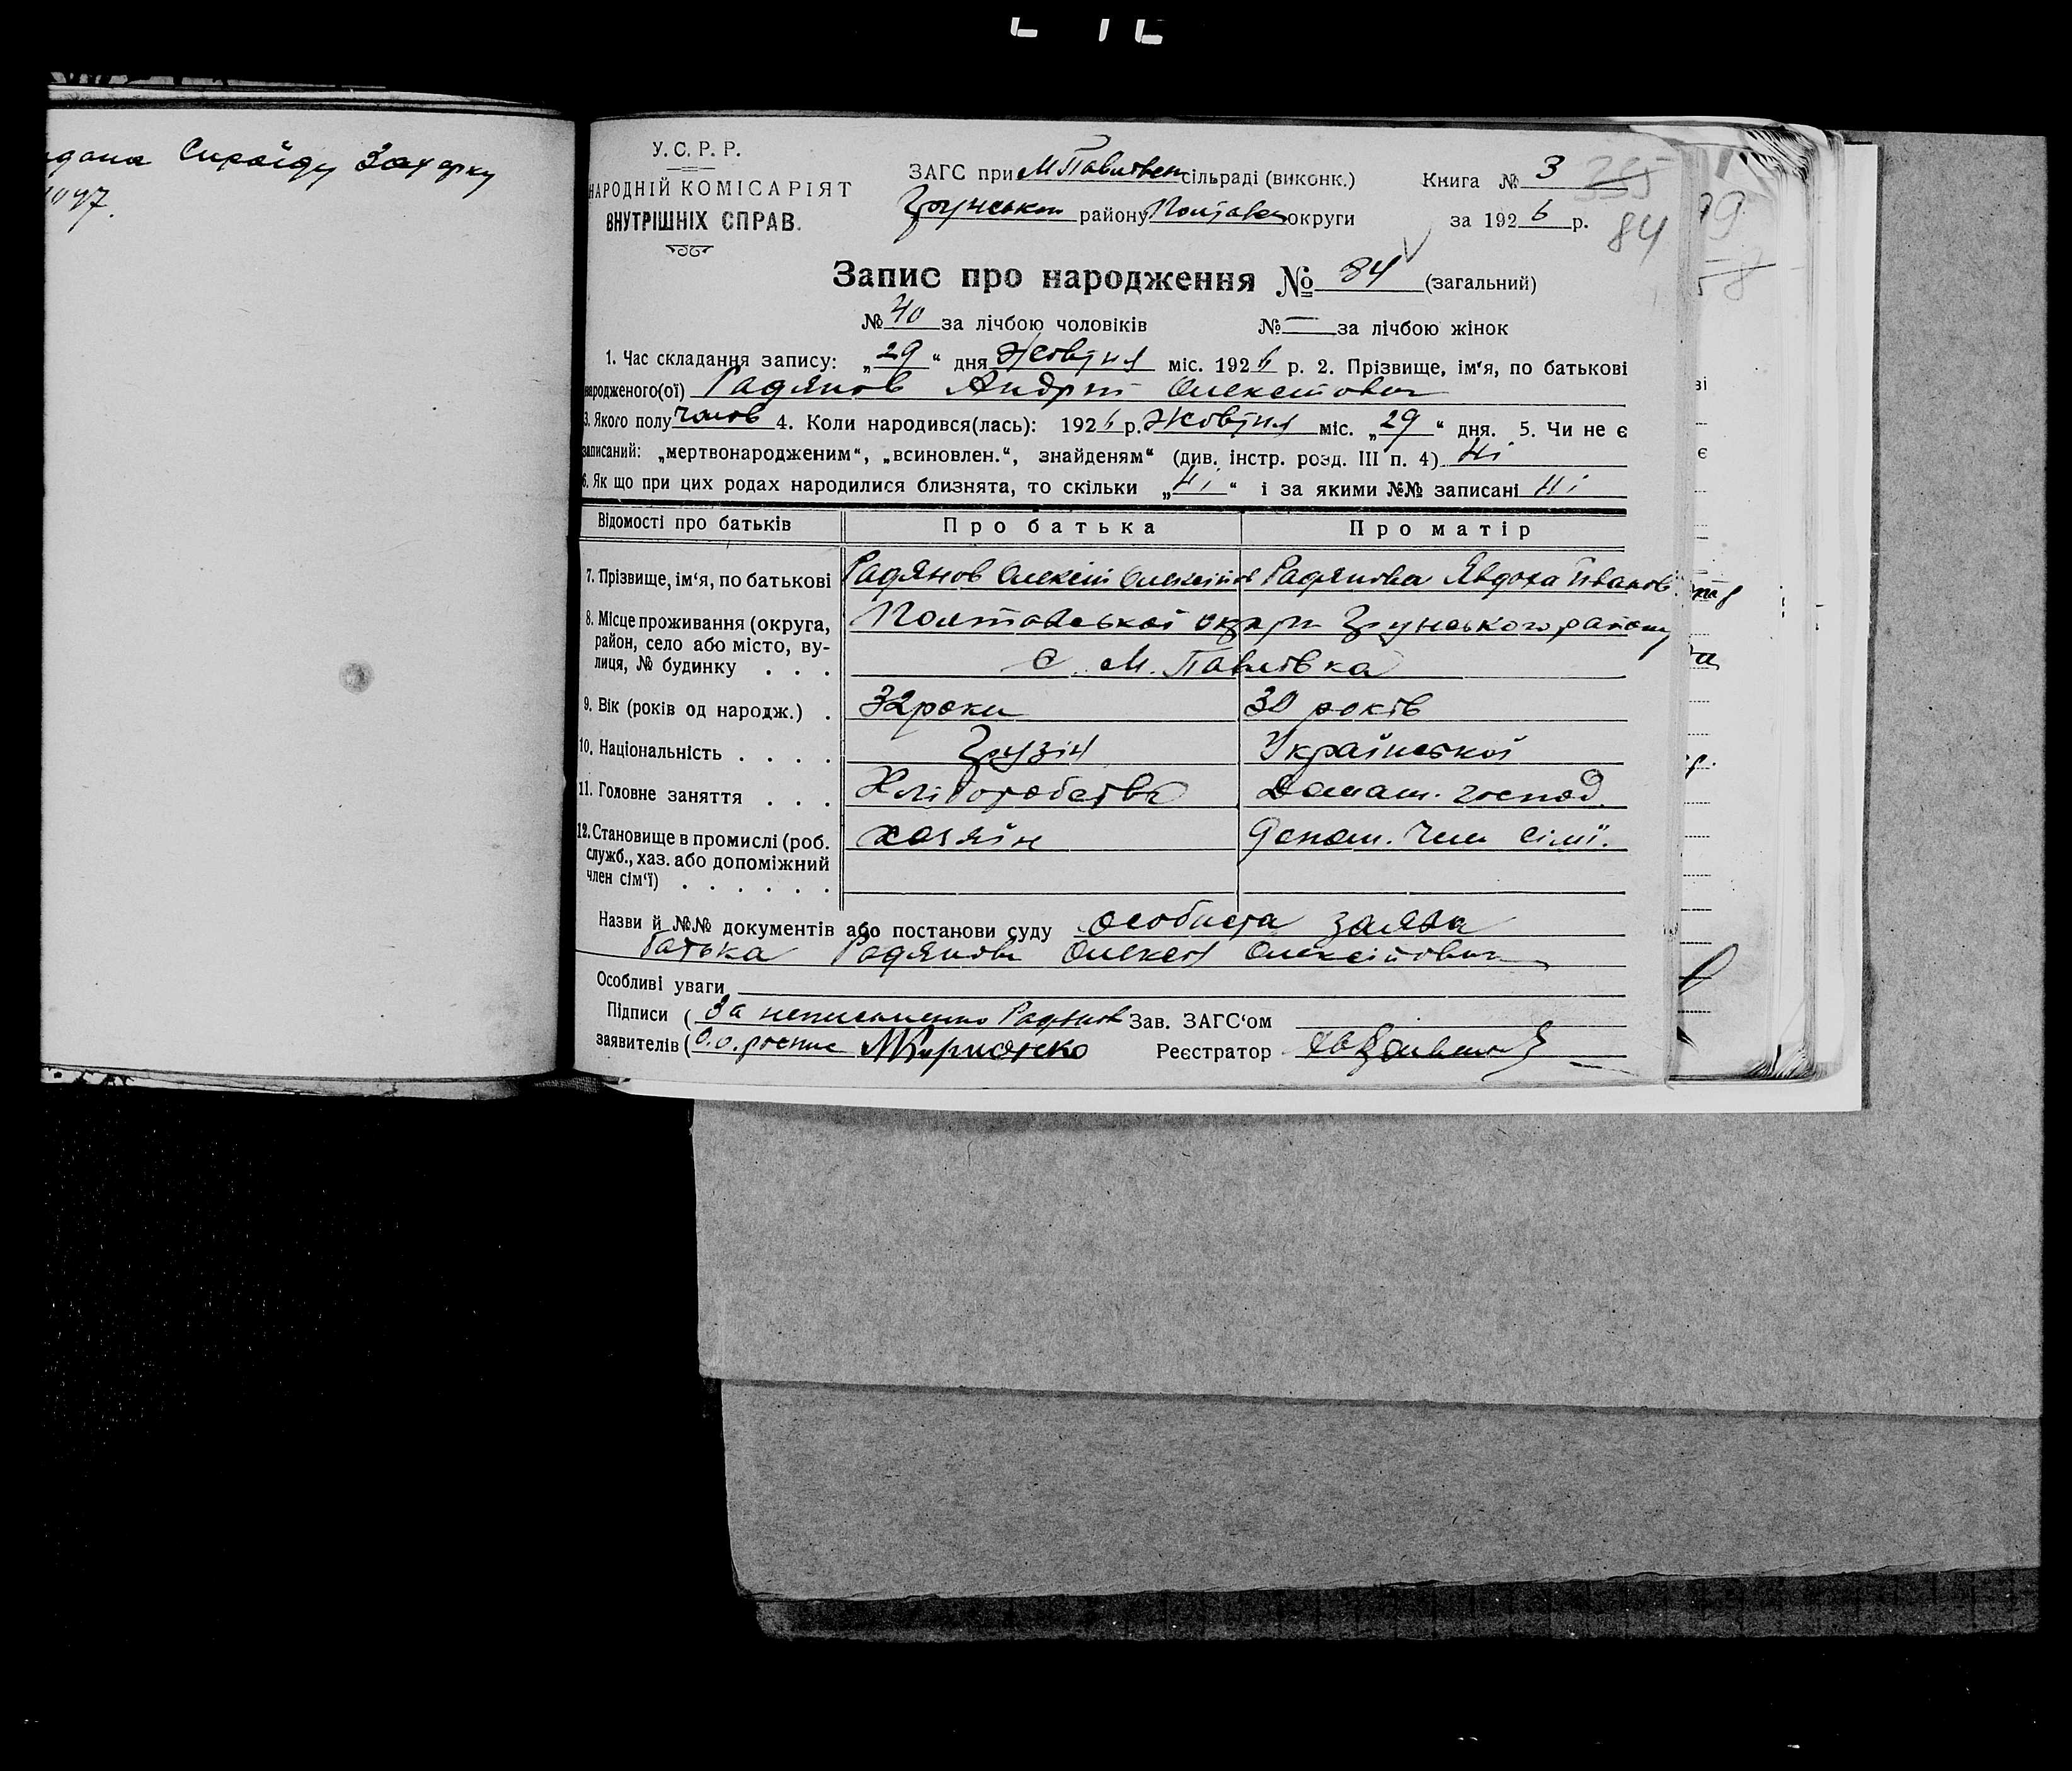 Сироїду Захарку
У.С.Р.Р.
НАРОДНІЙ КОМІСАРІЯТ
ВНУТРІШНІХ СПРАВ.
ЗАГС при М Павлівськ сільраді (виконк.)
Грунськом району Полтавськ округи
Книга № 3
за 1926 р.
84
Запис про народження № 84 (загальний)
№ 40 за лічбою чоловіків № — за лічбою жінок
1. Час складання запису: „29“ дня Жовтня міс. 1926 р. 2. Прізвище, ім'я, по батькові
народженого(ої) Радянов Андрій Олексієвич
3. Якого полу чолов 4. Коли народився(лась): 1926 р. Жовтня міс. „29“ дня. 5. Чи не є
записаний: „мертвонародженим“, „всиновлен.“, знайденям“ (див. інстр. розд. III п. 4) Ні
6. Як що при цих родах народилися близнята, то скільки „Ні“ і за якими №№ записані Ні
Відомості про батьків Про батька Про матір
7. Прізвище, ім'я, по батькові Радянов Олексій Олексійов Радянова Явдоха Іванов
8. Місце проживання (округа, Полтавської округи Грунського району
район, село або місто, ву-
лиця, № будинку . . . С. М. Павлівка
9. Вік (років од народж.) . 32 роки 30 років
10. Національність . . . . Грузін Української
11. Головне заняття . . . Хліборобство Домаш. господ.
12. Становище в промислі (роб. хозяїн Допом. член сімї.
служб., хаз. або допоміжний
член сім'ї) . . . . . .
Назви й №№ документів або постанови суду особиста заява
батька Радянова Олексія Олексійович
Особливі уваги
Підписи ( За неписьменно Радянов Зав. ЗАГС'ом
заявителів ( Реєстратор